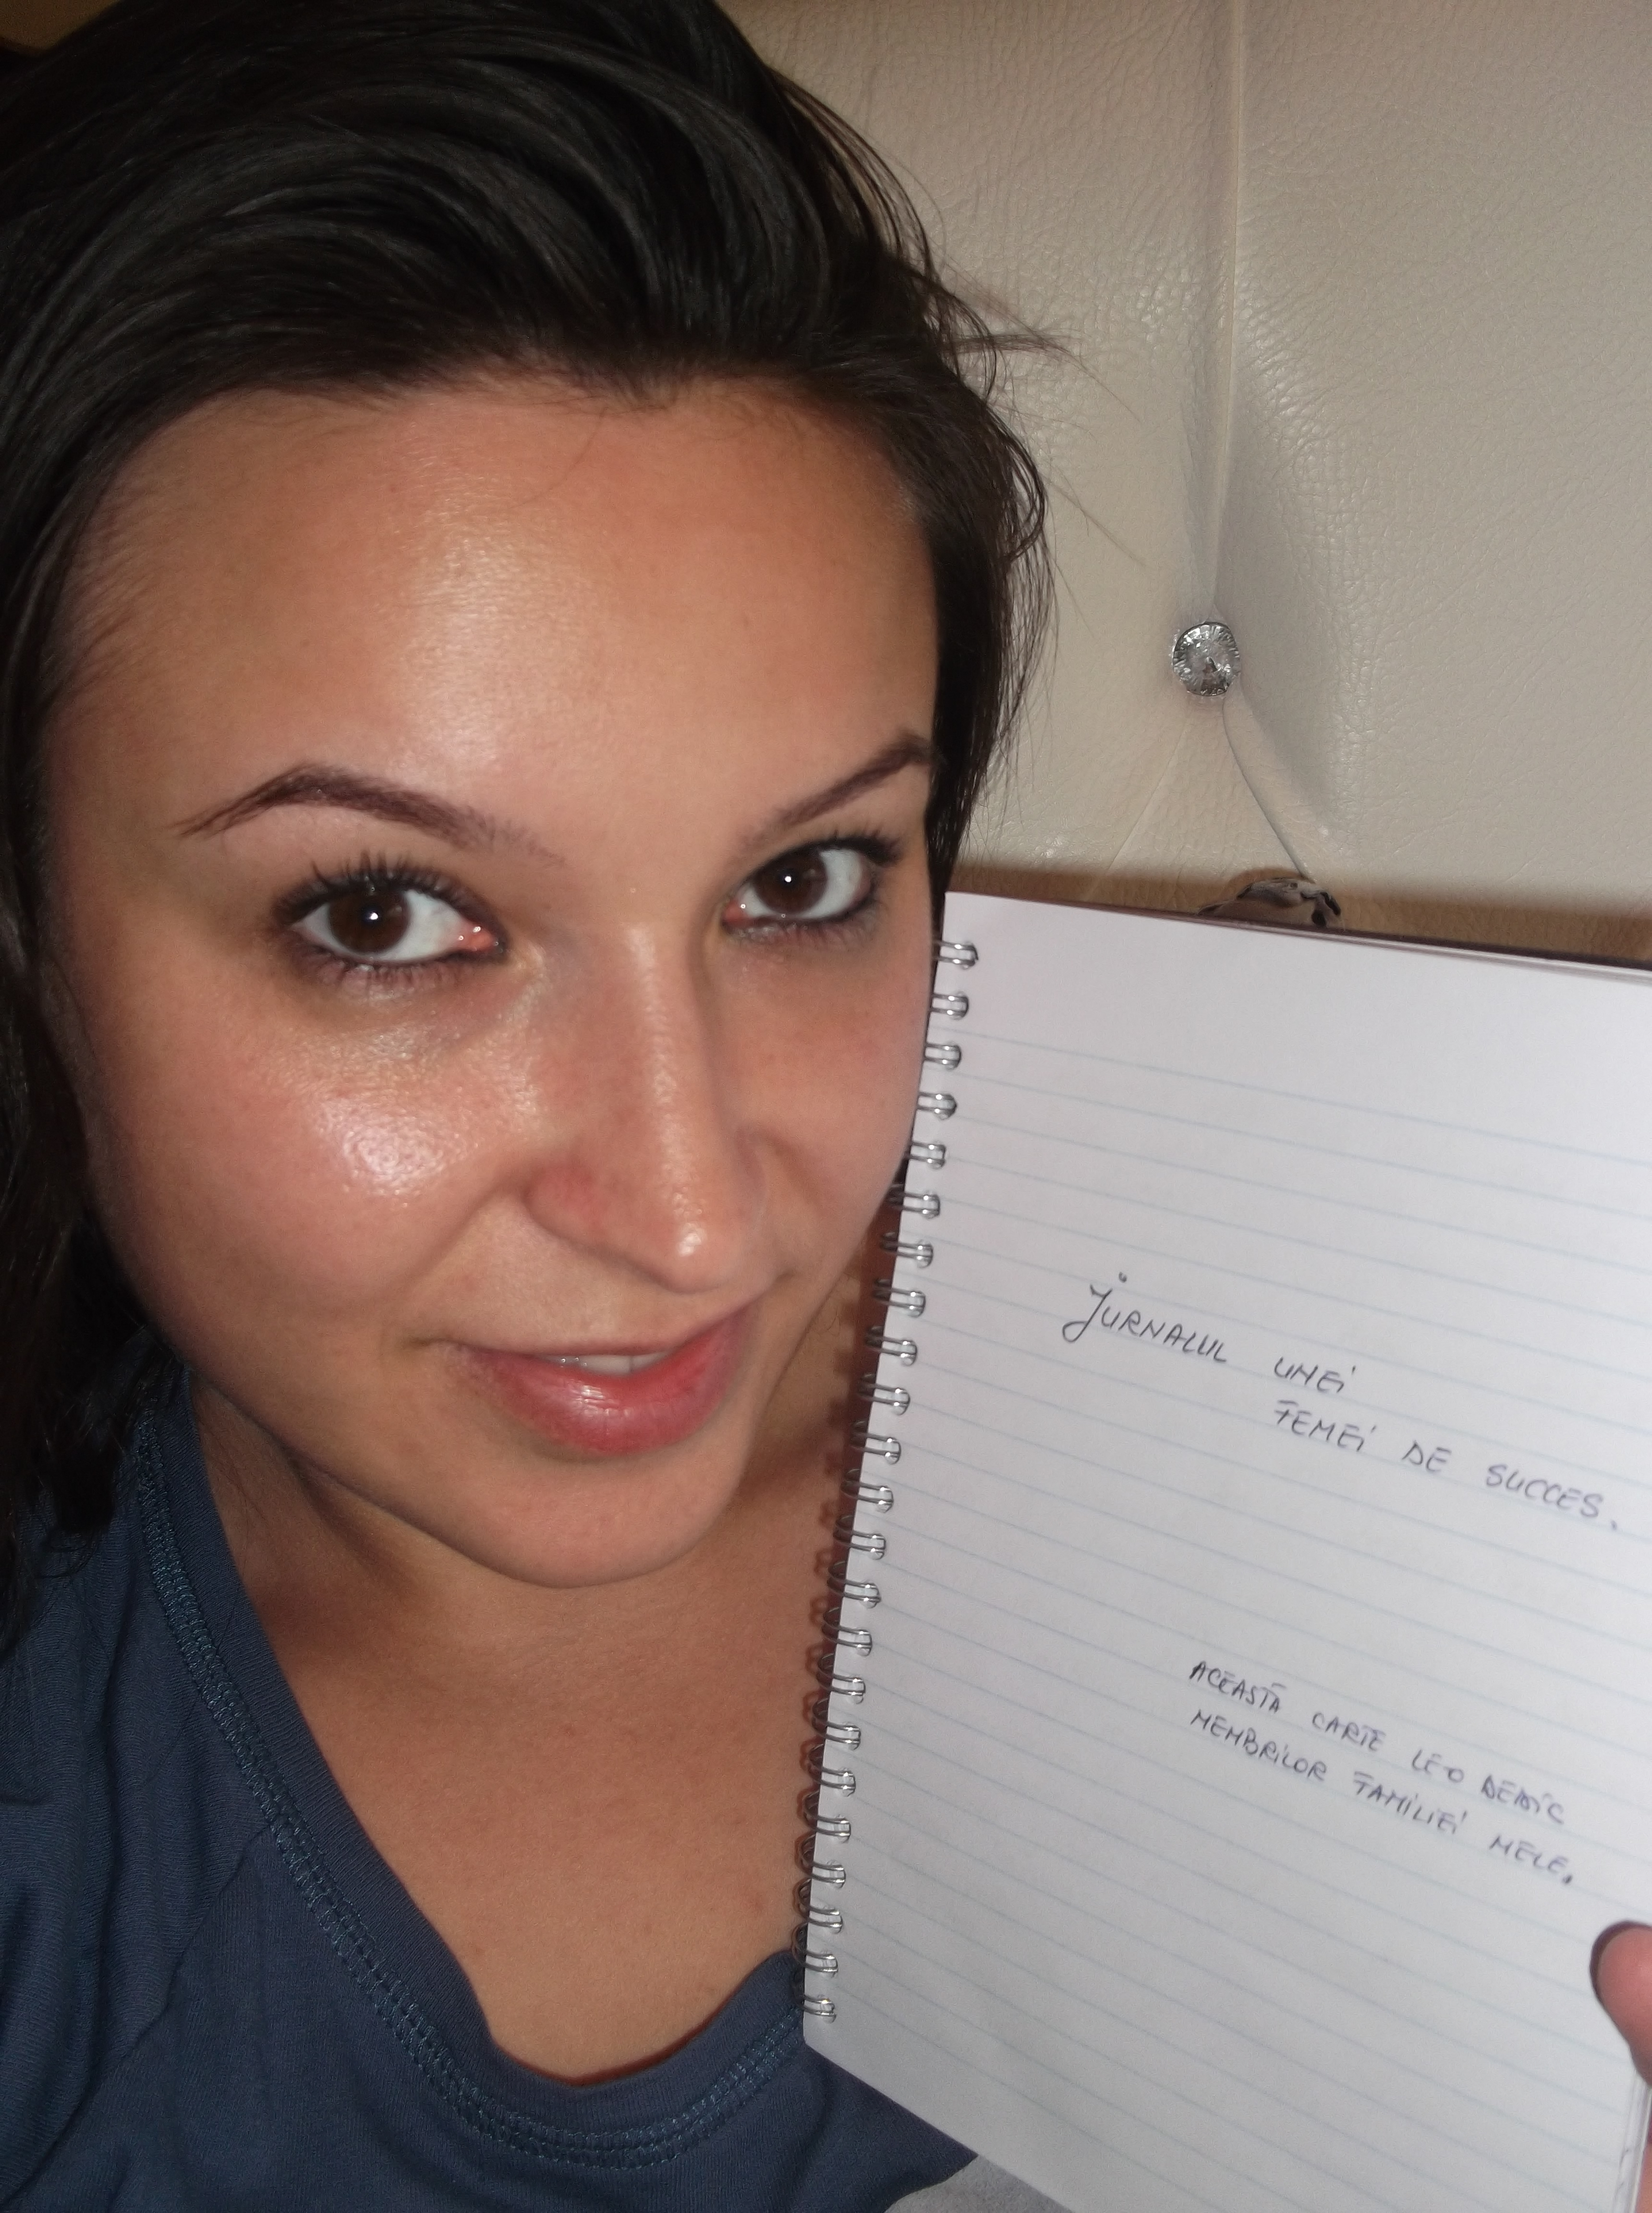 JURNALUL UNEI
FEMEI DE SUCCES.
ACEASTĂ CARTE LE-O DEDIC
MEMBRILOR FAMILIEI MELE,